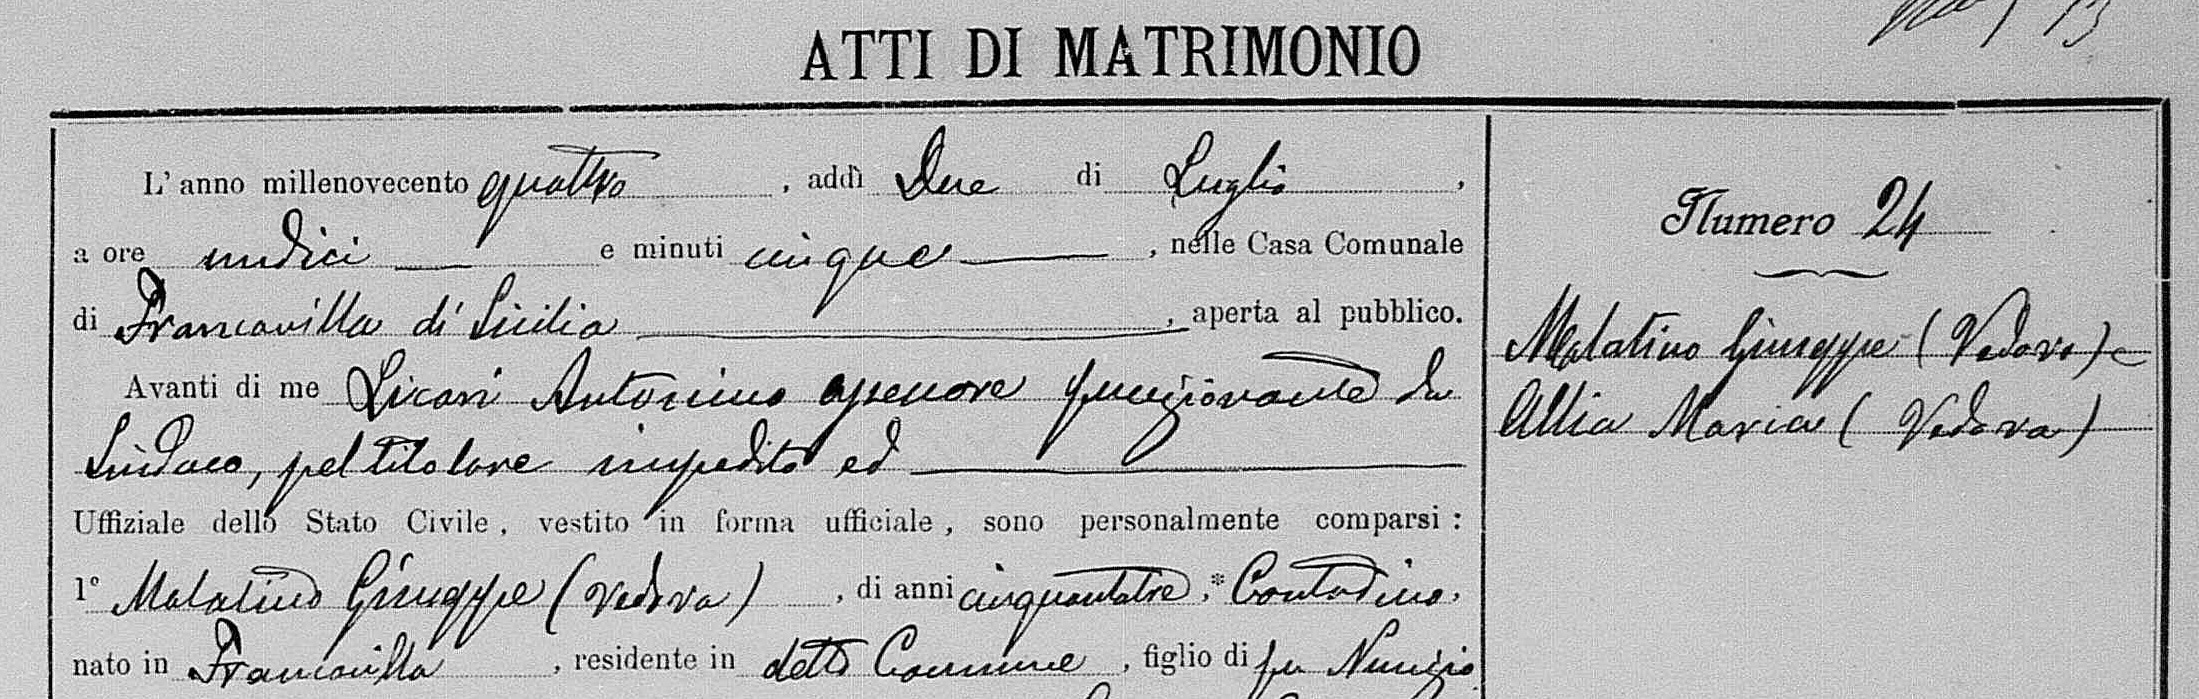 ATTI DI MATRIMONIO
L'anno millenovecento quattro, addì Due di Luglio,
a ore undici e minuti cinque, nelle Casa Comunale
di Francavilla di Sicilia, aperta al pubblico.
Avanti di me Licari Antonino assessore funzionante da
Sindaco, pel titolare impedito ed
Uffiziale dello Stato Civile, vestito in forma ufficiale, sono personalmente comparsi:
1° Malatino Giuseppe (vedovo), di anni cinquantatre, * Contadino,
nato in Francavilla, residente in detto Comune, figlio di fu Nunzio
Numero 24
Malatino Giuseppe (Vedovo) e
Allia Maria (Vedova)